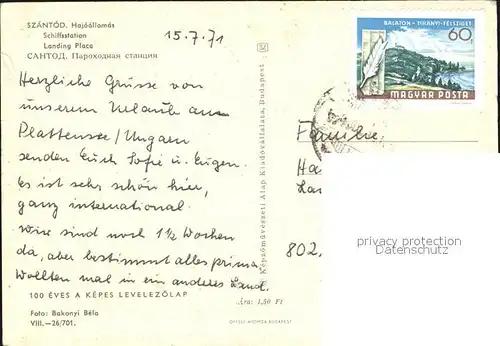 SZÁNTÓD. Hajóállomás
Schiffsstation
Landing Place
САНТОД. Пароходная станция
15.7.71
Herzliche Grüsse von
unserem Urlaub am
Plattensee/Ungarn
senden Euch Sofie u. Eugen.
Es ist sehr schön hier,
ganz international.
Wir sind noch 1½ Wochen
da, aber bestimmt alles prima.
Wollten mal in ein anderes Land.
100 ÉVES A KÉPES LEVELEZŐLAP
Ára: 1,50 Ft
Foto: Bakonyi Béla
VIII.—26/701.
OFFSET-NYOMDA BUDAPEST
Képzőművészeti Alap Kiadóvállalata, Budapest
BALATON - TIHANYI-FÉLSZIGET
60f
MAGYAR POSTA
Familie
Ha
802.
privacy protection
Datenschutz